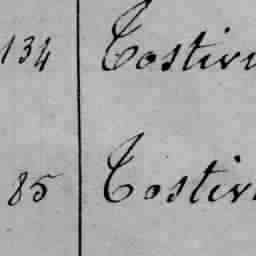 134 Costiv
85 Costiv